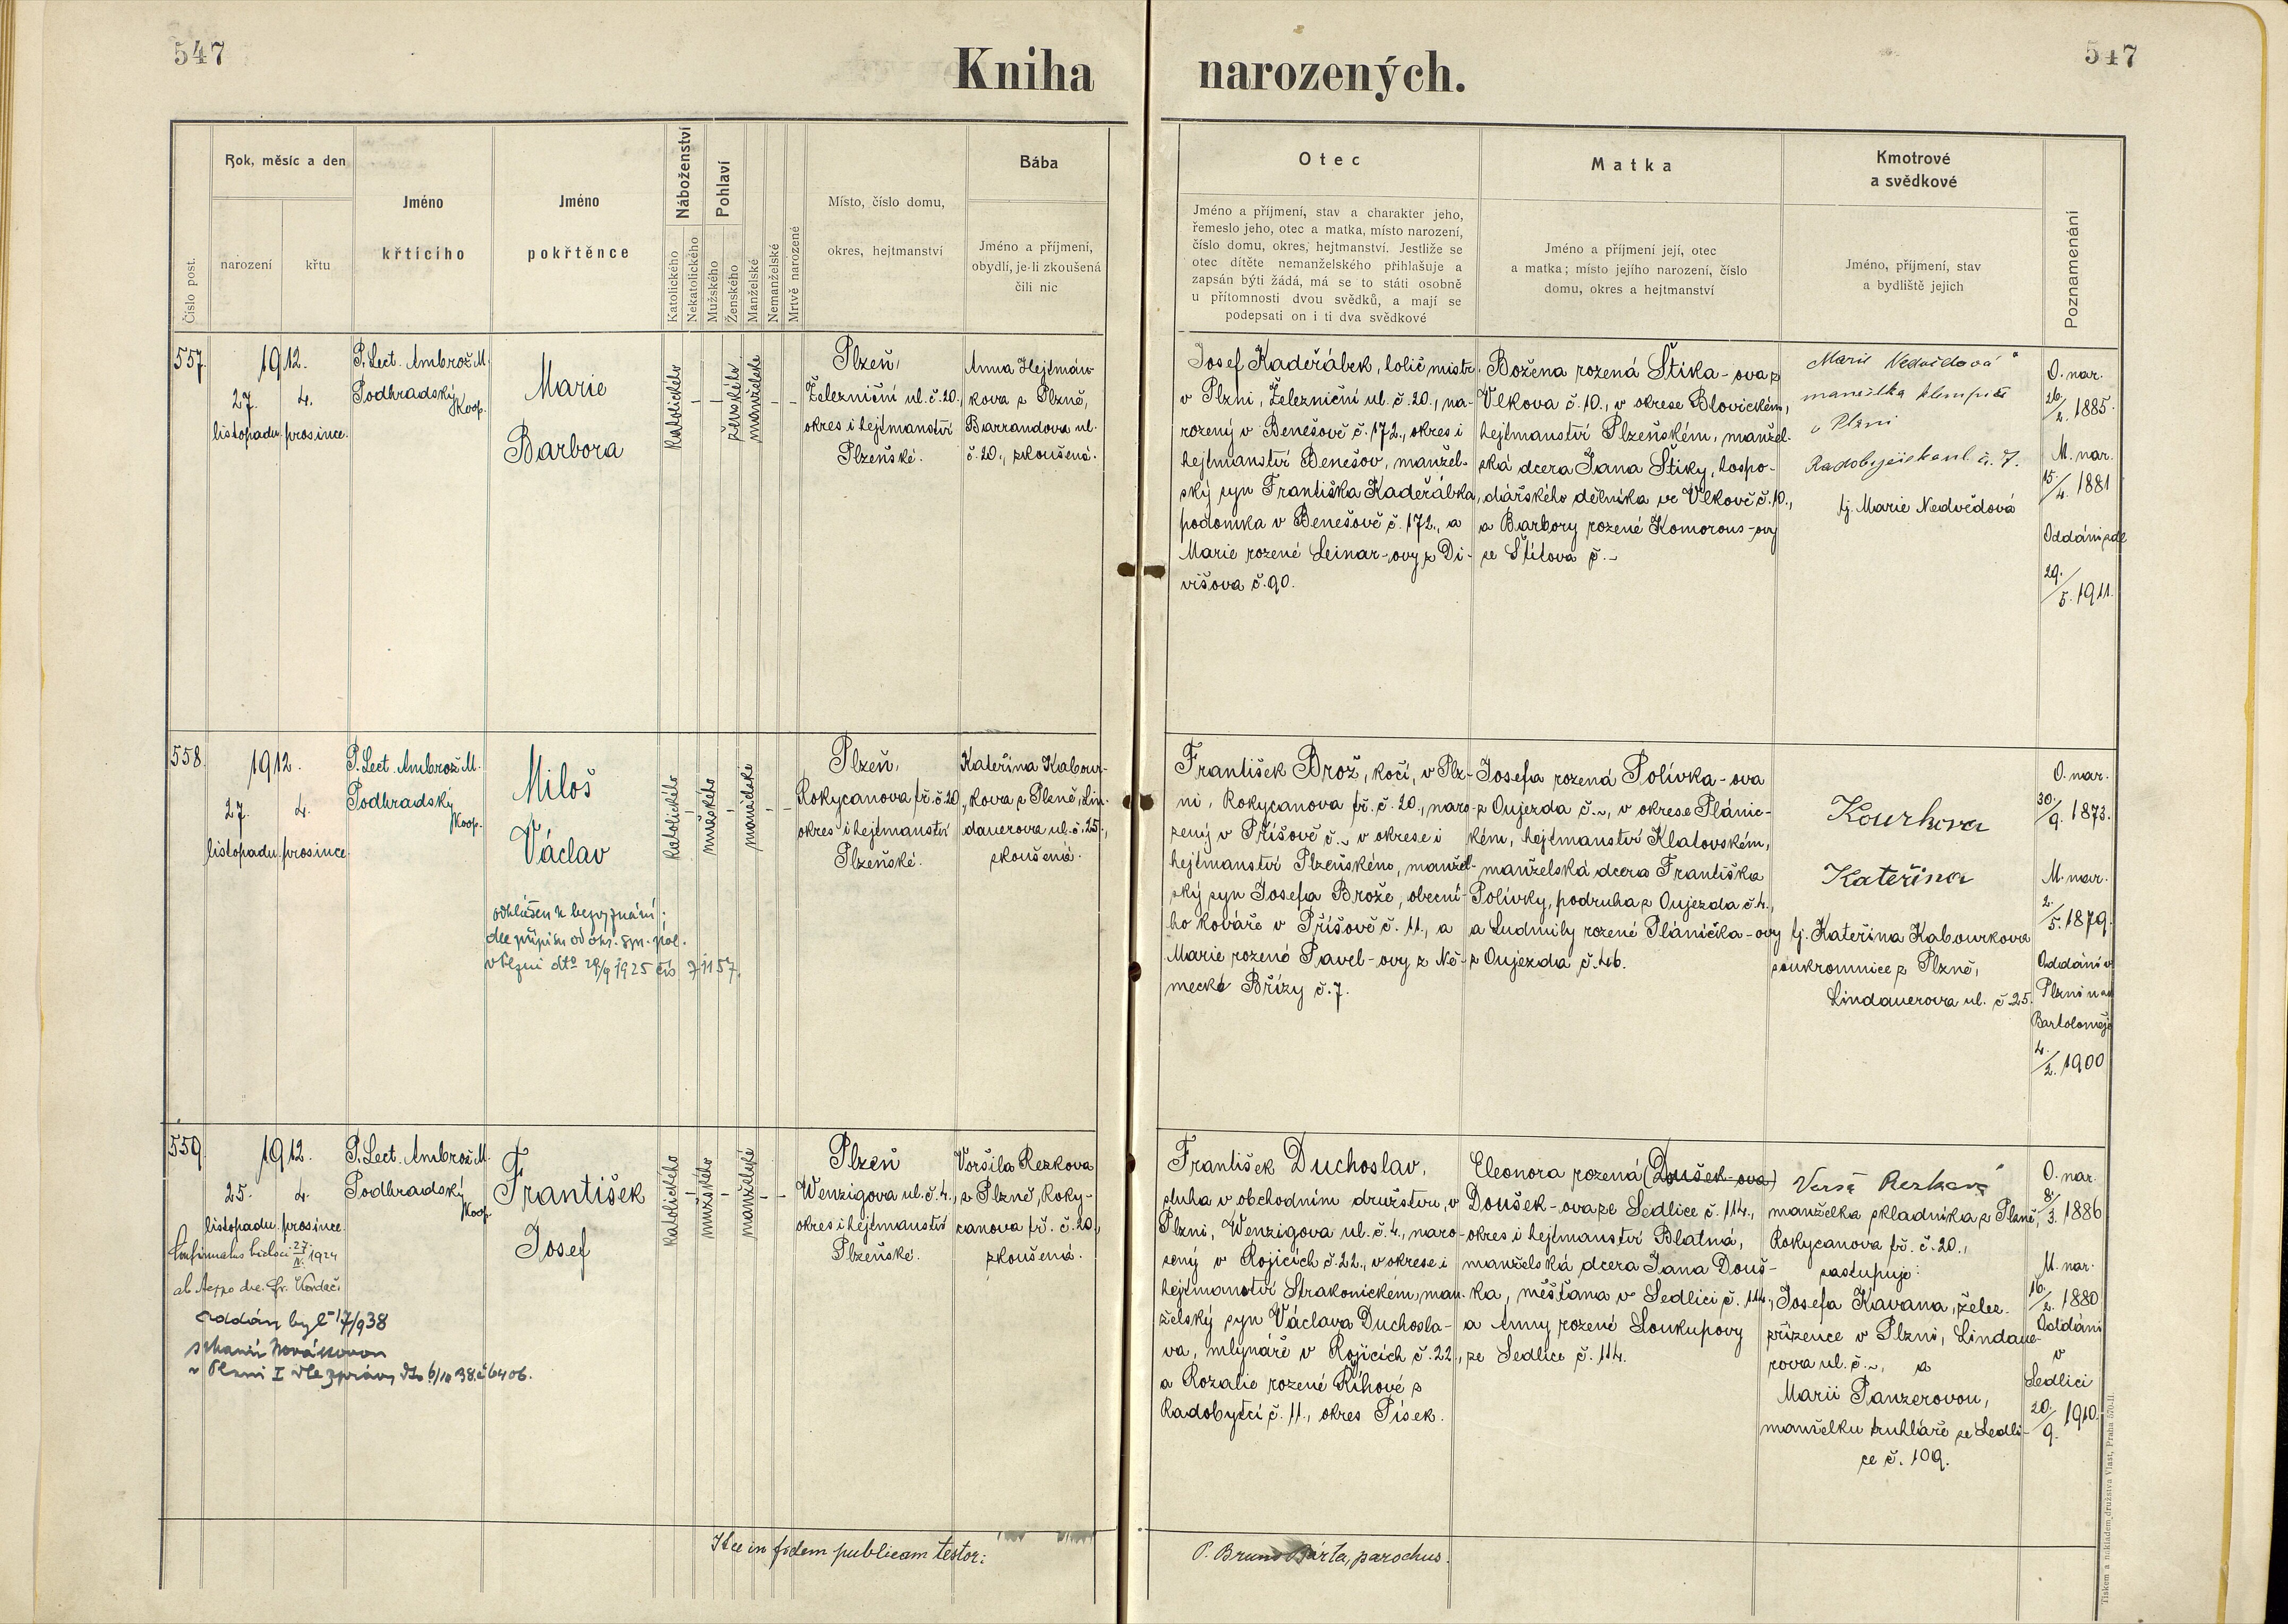 547
Kniha narozených.
547
Číslo post.
Rok, měsíc a den
narození
křtu
Jméno
křtícího
Jméno
pokřtěnce
Náboženství
Katolického
Nekatolického
Pohlaví
Mužského
Ženského
Manželské
Nemanželské
Mrtvě narozené
Místo, číslo domu,
okres, hejtmanství
Bába
Jméno a příjmení,
obydlí, je-li zkoušená
čili nic
Otec
Jméno a příjmení, stav a charakter jeho,
řemeslo jeho, otec a matka, místo narození,
číslo domu, okres, hejtmanství. Jestliže se
otec dítěte nemanželského přihlašuje a
zapsán býti žádá, má se to státi osobně
u přítomnosti dvou svědků, a mají se
podepsati on i ti dva svědkové
Matka
Jméno a příjmení její, otec
a matka; místo jejího narození, číslo
domu, okres a hejtmanství
Kmotrové
a svědkové
Jméno, příjmení, stav
a bydliště jejich
Poznamenání
557.
1912.
27. 4.
listopadu. prosince.
P. Lect. Ambrož M.
Podhradský
Koop.
Marie
Barbora
katolického
–
–
ženského
manželské
–
–
Plzeň,
Železniční ul. č. 20.,
okres i hejtmanství
Plzeňské.
Anna Hejtmán-
kova z Plzně,
Barrandova ul.
č. 20., zkoušená.
Josef Kadeřábek, holič mistr.
v Plzni, Železniční ul. č. 20., na-
rozený v Benešově č. 172., okres i
hejtmanství Benešov, manžel-
ský syn Františka Kadeřábka,
podomka v Benešově č. 172., a
Marie rozené Leinar-ovy z Di-
višova č. 90.
Božena rozená Štika-ova z
Vlkova č. 10., v okrese Blovickém,
hejtmanství Plzeňském, manžel-
ská dcera Jana Štiky, hospo-
dářského dělníka ve Vlkově č. 10.,
a Barbory rozené Komorous-ovy
ze Štítova č. -
Marie Nedvědová
manželka klempíře
v Plzni
Radobyčická ul. č. 7.
tj. Marie Nedvědová
O. nar.
26./2. 1885.
M. nar.
15./4. 1881
Oddáni zde
29./5. 1911.
558.
1912.
27. 4.
listopadu. prosince.
P. Lect. Ambrož M.
Podhradský
Koop.
Miloš
Václav
odhlášen k bezvyznání
dle přípisu od okr. spr. pol.
v Plzni dto 29/9 1925 čís. 71157.
katolického
–
mužského
–
manželské
–
–
Plzeň,
Rokycanova tř. č. 20.,
okres i hejtmanství
Plzeňské.
Kateřina Kabour-
kova z Plzně, Lin-
dauerova ul. č. 25.,
zkoušená.
František Brož, kočí, v Plz-
ni, Rokycanova tř. č. 20., naro-
zený v Příšově č. - v okrese i
hejtmanství Plzeňského, manžel-
ský syn Josefa Brože, obecní-
ho kováře v Příšově č. 11., a
Marie rozené Pavel-ovy z Ně-
mecké Břízy č. 7.
Josefa rozená Polívka-ova
z Oujezda č. -, v okrese Plánic-
kém, hejtmanství Klatovském,
manželská dcera Františka
Polívky, podruha z Oujezda č. 4.,
a Ludmily rozené Plánička-ovy
z Oujezda č. 46.
Kateřina
tj. Kateřina Kabourkova
soukromnice z Plzně,
Lindauerova ul. č. 25.
O. nar.
30./9. 1873.
M. nar.
2./5. 1879.
Oddáni v
Plzni u
Bartoloměje
4./2. 1900
559.
1912.
25. 4.
listopadu. prosince.
27./IV. 1924
oddán byl 17/9 38
s Marií Novákovou
v Plzni I dle zprávy dto 6/10 38 č. 6406.
P. Lect. Ambrož M.
Podhradský
Koop.
František
Josef
katolického
–
mužského
–
manželské
–
–
Plzeň
Wenzigova ul. č. 4.,
okres i hejtmanství
Plzeňské.
Voršila Rezkova
z Plzně, Roky-
canova tř. č. 20.,
zkoušená.
František Duchoslav,
sluha v obchodním družstvu, v
Plzni, Wenzigova ul. č. 4., naro-
zený v Rojicích č. 22., v okrese i
hejtmanství Strakonickém, man-
želský syn Václava Duchosla-
va, mlynáře v Rojicích č. 22.,
a Rozalie rozené Říhové z
Radobytcí č. 11., okres Písek.
Eleonora rozená (Doušek-ova)
Doušek-ova ze Sedlice č. 114.,
okres i hejtmanství Blatná,
manželská dcera Jana Douš-
ka, měšťana v Sedlici č. 114.,
a Anny rozené Soukupovy
ze Sedlice č. 114.
manželka skladníka z Plzně,
Rokycanova tř. č. 20.,
zastupuje:
Josefa Kavana, želez.
zřízence v Plzni, Lindaue-
rova ul. č. -, a
Marii Panzerovou,
manželku truhláře ze Sedli-
ce č. 109.
O. nar.
8./3. 1886
M. nar.
16./2. 1880
Oddáni
v
Sedlici
20./9. 1910.
Ita in fidem publicam testor:
P. Bruno Bárta, parochus.
Tiskem a nákladem družstva Vlast, Praha 570-II.